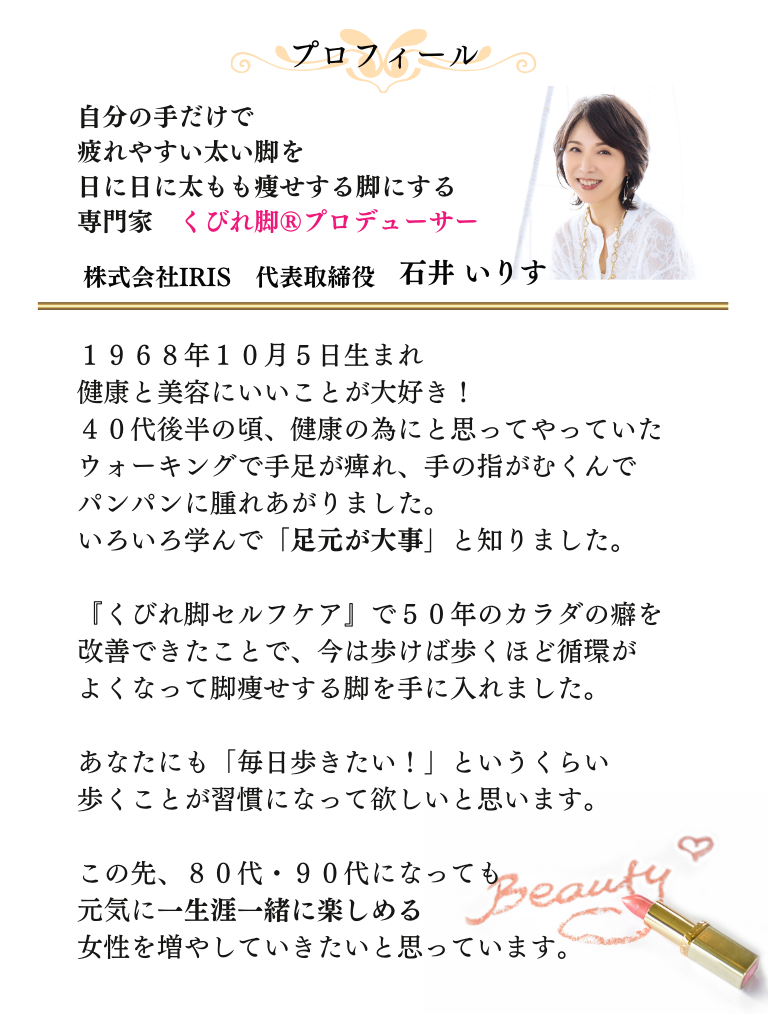 プロフィール
自分の手だけで
疲れやすい太い脚を
日に日に太もも痩せする脚にする
専門家　くびれ脚®プロデューサー
株式会社IRIS　代表取締役　石井 いりす
１９６８年１０月５日生まれ
健康と美容にいいことが大好き！
４０代後半の頃、健康の為にと思ってやっていた
ウォーキングで手足が痺れ、手の指がむくんで
パンパンに腫れあがりました。
いろいろ学んで「足元が大事」と知りました。
『くびれ脚セルフケア』で５０年のカラダの癖を
改善できたことで、今は歩けば歩くほど循環が
よくなって脚痩せする脚を手に入れました。
あなたにも「毎日歩きたい！」というくらい
歩くことが習慣になって欲しいと思います。
この先、８０代・９０代になっても
元気に一生涯一緒に楽しめる
女性を増やしていきたいと思っています。
Beauty